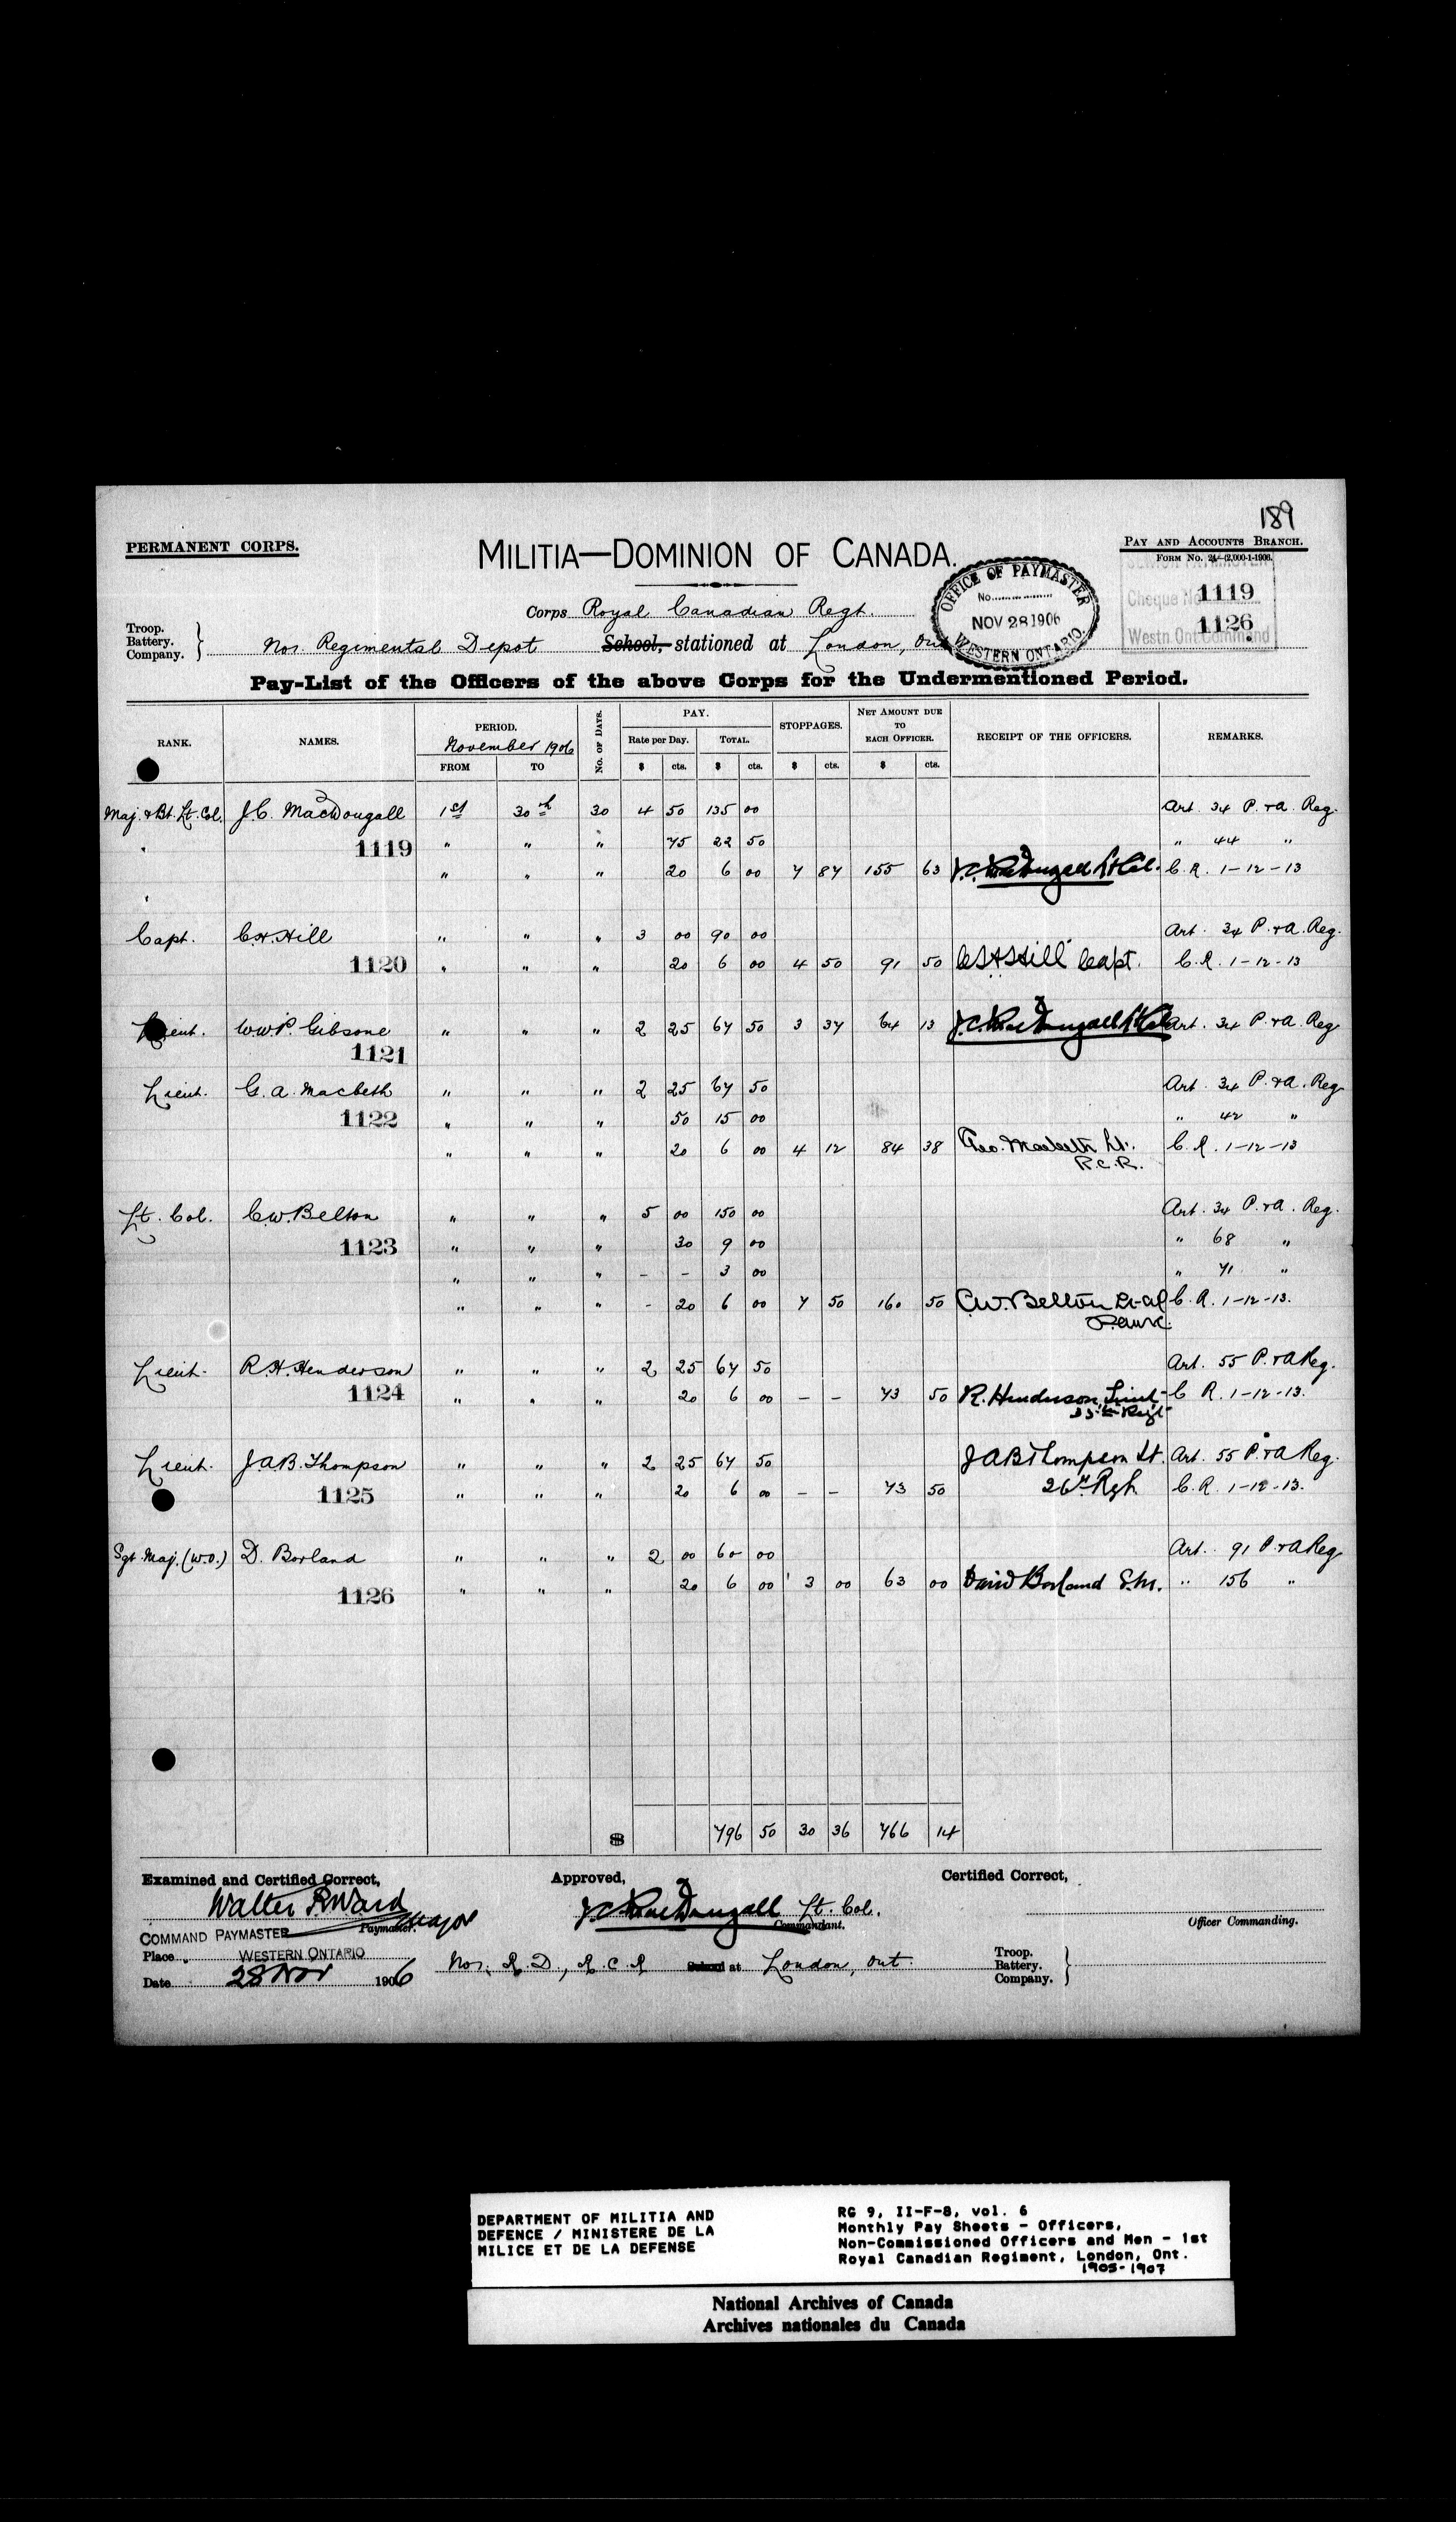 189
PERMANENT CORPS.
MILITIA—DOMINION OF CANADA.
PAY AND ACCOUNTS BRANCH.
FORM No. 24—(2,000-1-1906.
OFFICE OF PAYMASTER
No.
NOV 28 1906
WESTERN ONTARIO
Cheque No 1119
1126
Westn Ont Command
Corps Royal Canadian Regt.
Troop.
Battery.
Company.
No 1. Regimental Depot School, stationed at London, Ont
Pay-List of the Officers of the above Corps for the Undermentioned Period.
RANK. NAMES. PERIOD. November 1906 FROM TO No. OF DAYS. PAY. Rate per Day. $ cts. TOTAL. $ cts. STOPPAGES. $ cts. NET AMOUNT DUE TO EACH OFFICER. $ cts. RECEIPT OF THE OFFICERS. REMARKS.
Maj. & Bt. Lt. Col. J.C. MacDougall 1st 30th 30 4 50 135 00 Art. 34 P. & A. Reg.
1119 " " " 75 22 50 " 44 "
" " " 20 6 00 7 87 155 63 J.C. MacDougall Lt Col. C.R. 1-12-13
Capt. C.H. Hill " " " 3 00 90 00 Art. 34 P. & A. Reg.
1120 " " " 20 6 00 4 50 91 50 C H Hill Capt. C.R. 1-12-13
Lieut. W.W.P. Gibsone " " " 2 25 67 50 3 37 64 13 J.C. MacDougall Lt Col Art. 34 P. & A. Reg
1121
Lieut. G.A. Macbeth " " " 2 25 67 50 Art. 34 P. & A. Reg
1122 " " " 50 15 00 " 42 "
" " " 20 6 00 4 12 84 38 Geo. Macbeth Lt. C.R. 1-12-13
R.C.R.
Lt. Col. C.W. Belton " " " 5 00 150 00 Art. 34 P. & A. Reg.
1123 " " " 30 9 00 " 68 "
" " " - - 3 00 " 71 "
" " " - 20 6 00 7 50 160 50 C.W. Belton Lt-Col C.R. 1-12-13.
Lieut. R.H. Henderson " " " 2 25 67 50 Art. 55 P. & A Reg.
1124 " " " 20 6 00 - - 73 50 R. Henderson, Lieut- C R. 1-12-13.
Lieut. J.A.B. Thompson " " " 2 25 67 50 J A B Thompson Lt. Art. 55 P. & A Reg.
1125 " " " 20 6 00 - - 73 50 26th Regt. C.R. 1-12-13.
Sgt. Maj. (W.O.) D. Borland " " " 2 00 60 00 Art. 91 P. & A Reg
1126 " " " 20 6 00 3 00 63 00 David Borland S.M. " 156 "
$ 796 50 30 36 766 14
Examined and Certified Correct, Approved, Certified Correct,
Walter R Ward Major
COMMAND PAYMASTER Paymaster.
J.C. MacDougall Lt. Col.
Commandant.
Officer Commanding.
Place WESTERN ONTARIO
No 1. R.D., R.C.R School at London, Ont.
Troop.
Battery.
Company.
Date 28 Nov 1906
DEPARTMENT OF MILITIA AND
DEFENCE / MINISTERE DE LA
MILICE ET DE LA DEFENSE
RG 9, II-F-8, vol. 6
Monthly Pay Sheets - Officers,
Non-Commissioned Officers and Men - 1st
Royal Canadian Regiment, London, Ont.
1905-1907
National Archives of Canada
Archives nationales du Canada